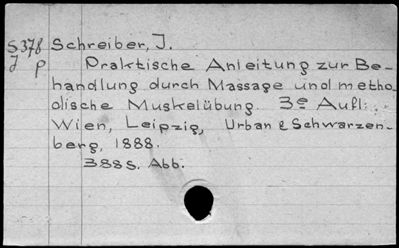 S378 Schreiber, J.
J p Praktische Anleitung zur Be-
handlung durch Massage und metho-
dische Muskelübung. 3e Aufl:
Wien, Leipzig, Urban & Schwarzen-
berg, 1888.
388 S. Abb.